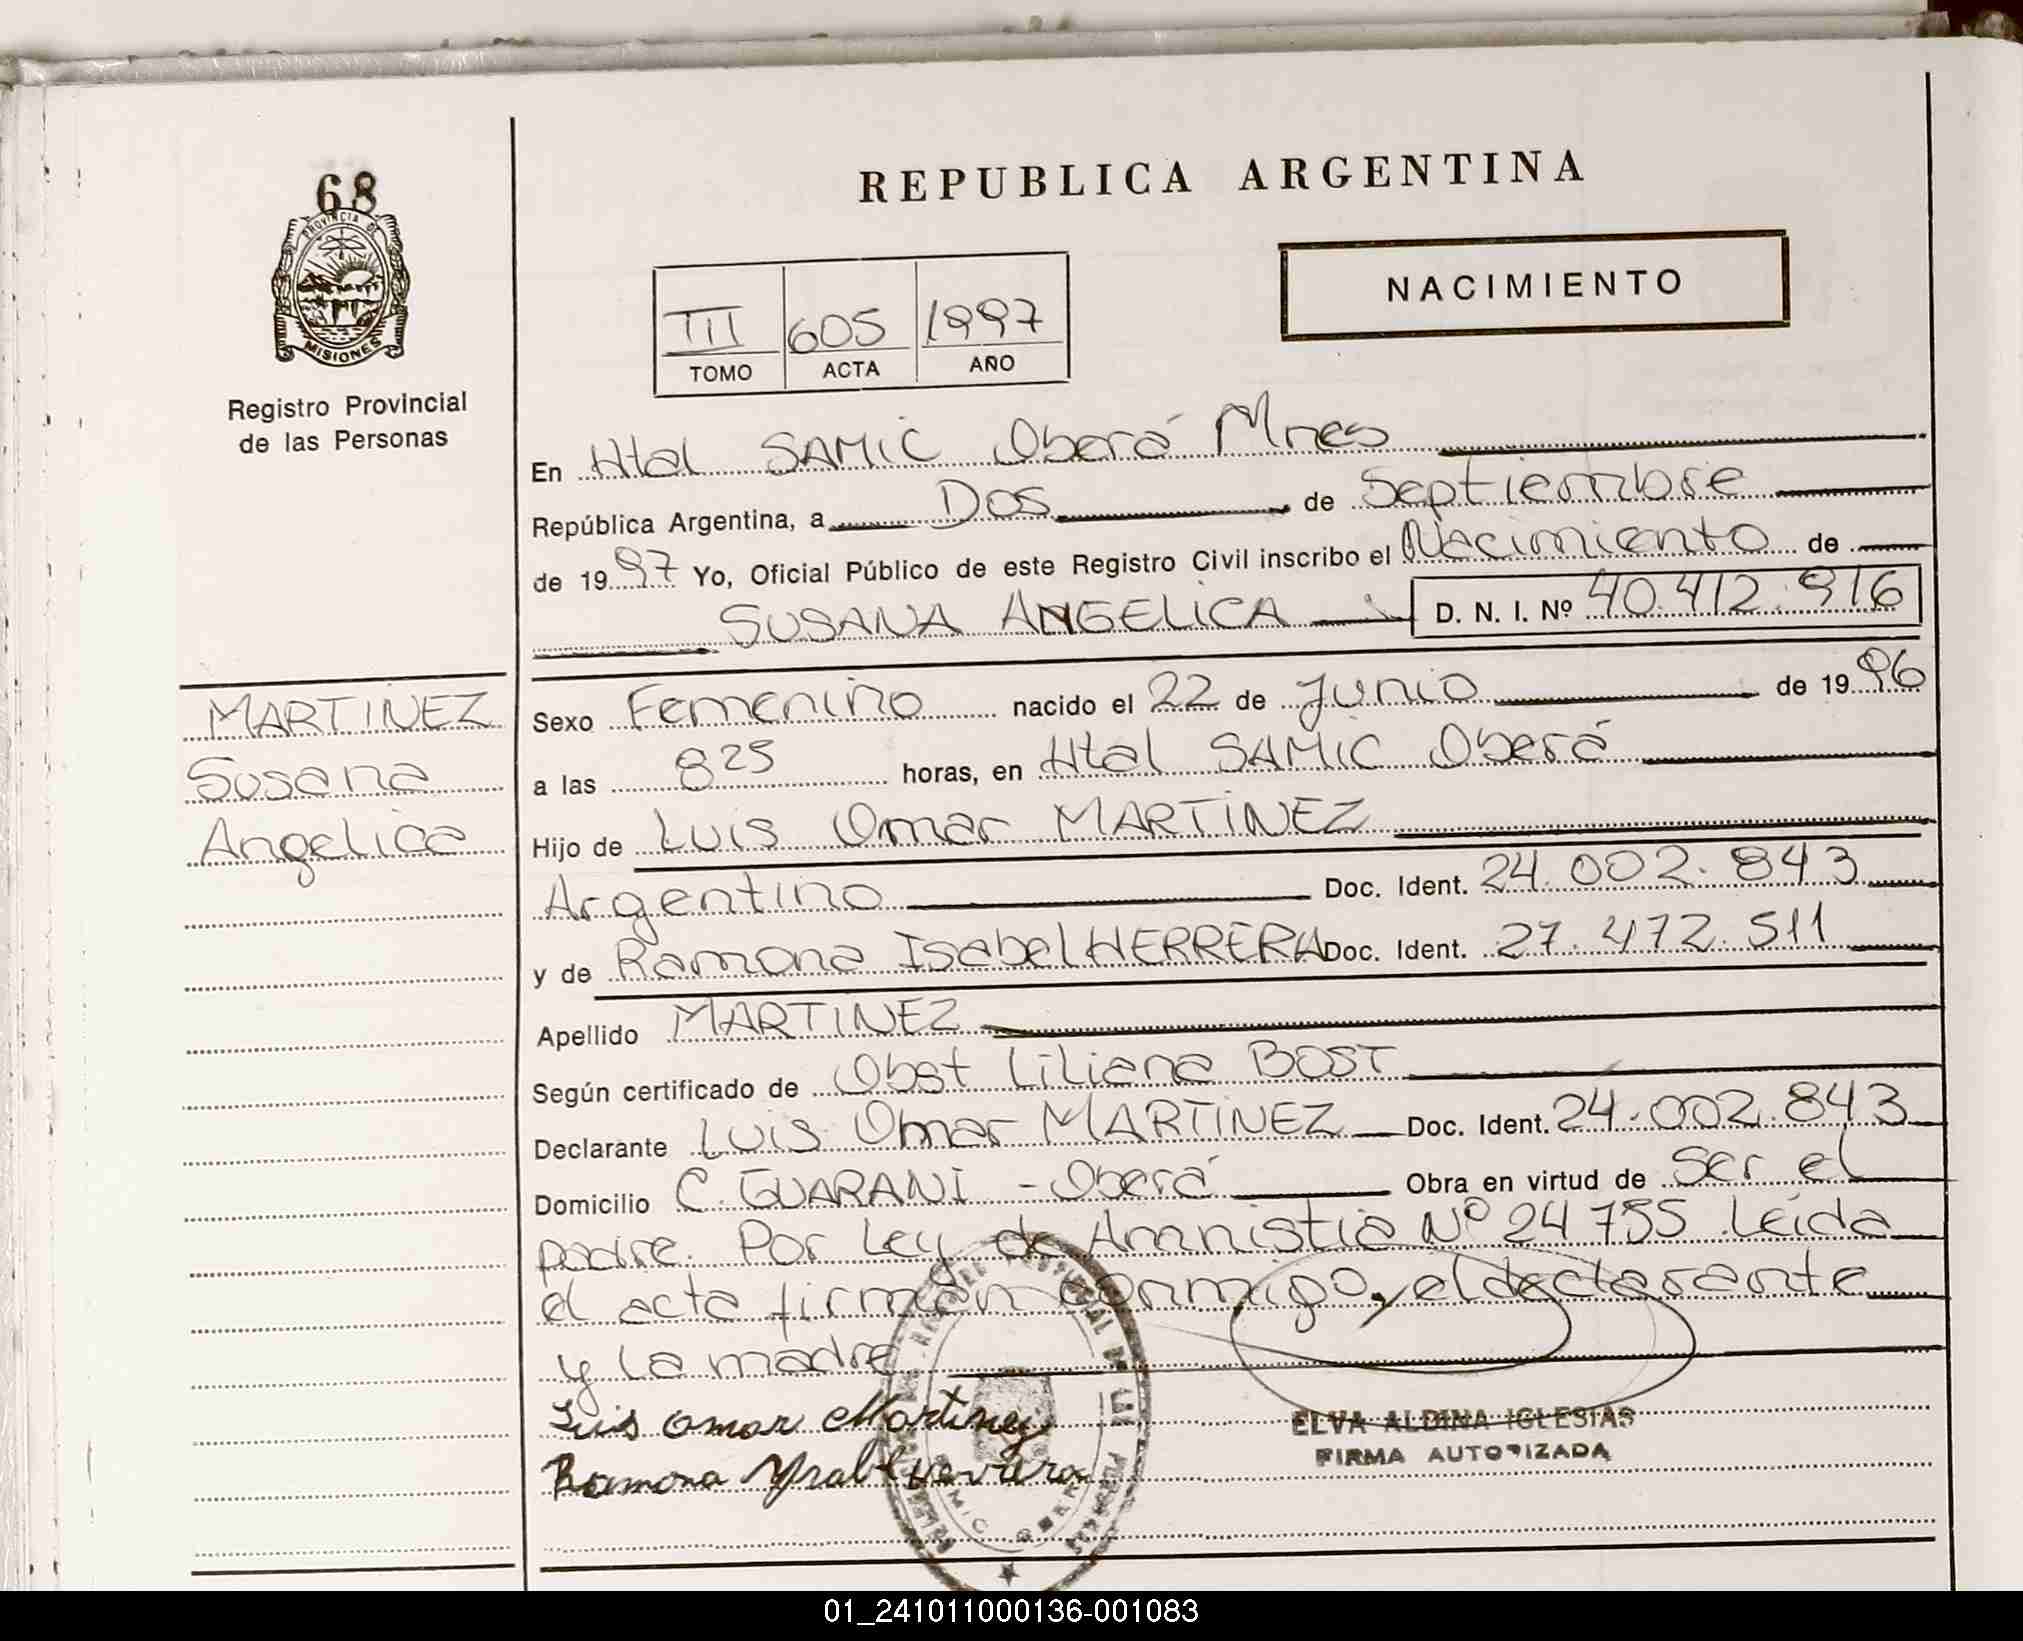 68
PROVINCIA DE
MISIONES
Registro Provincial
de las Personas
REPUBLICA ARGENTINA
NACIMIENTO
III 605 1997
TOMO ACTA AÑO
En Htal SAMIC Oberá Mnes
República Argentina, a Dos de Septiembre
de 1997 Yo, Oficial Público de este Registro Civil inscribo el Nacimiento de
SUSANA ANGELICA D. N. I. Nº 40.412.916
MARTINEZ
Susana
Angelica
Sexo Femenino nacido el 22 de Junio de 1996
a las 8 25 horas, en Htal SAMIC Oberá
Hijo de Luis Omar MARTINEZ
Argentino Doc. Ident. 24.002.843
y de Ramona Isabel HERRERA Doc. Ident. 27.472.511
Apellido MARTINEZ
Según certificado de Obst Liliana BOST
Declarante Luis Omar MARTINEZ Doc. Ident. 24.002.843
Domicilio C. GUARANI - Oberá Obra en virtud de Ser el
padre. Por Ley de Amnistia Nº 24755. Leida
el acta firman conmigo, el declarante
y la madre
Luis Omar Martinez
Ramona
ELVA ALDINA IGLESIAS
FIRMA AUTORIZADA
01_241011000136-001083